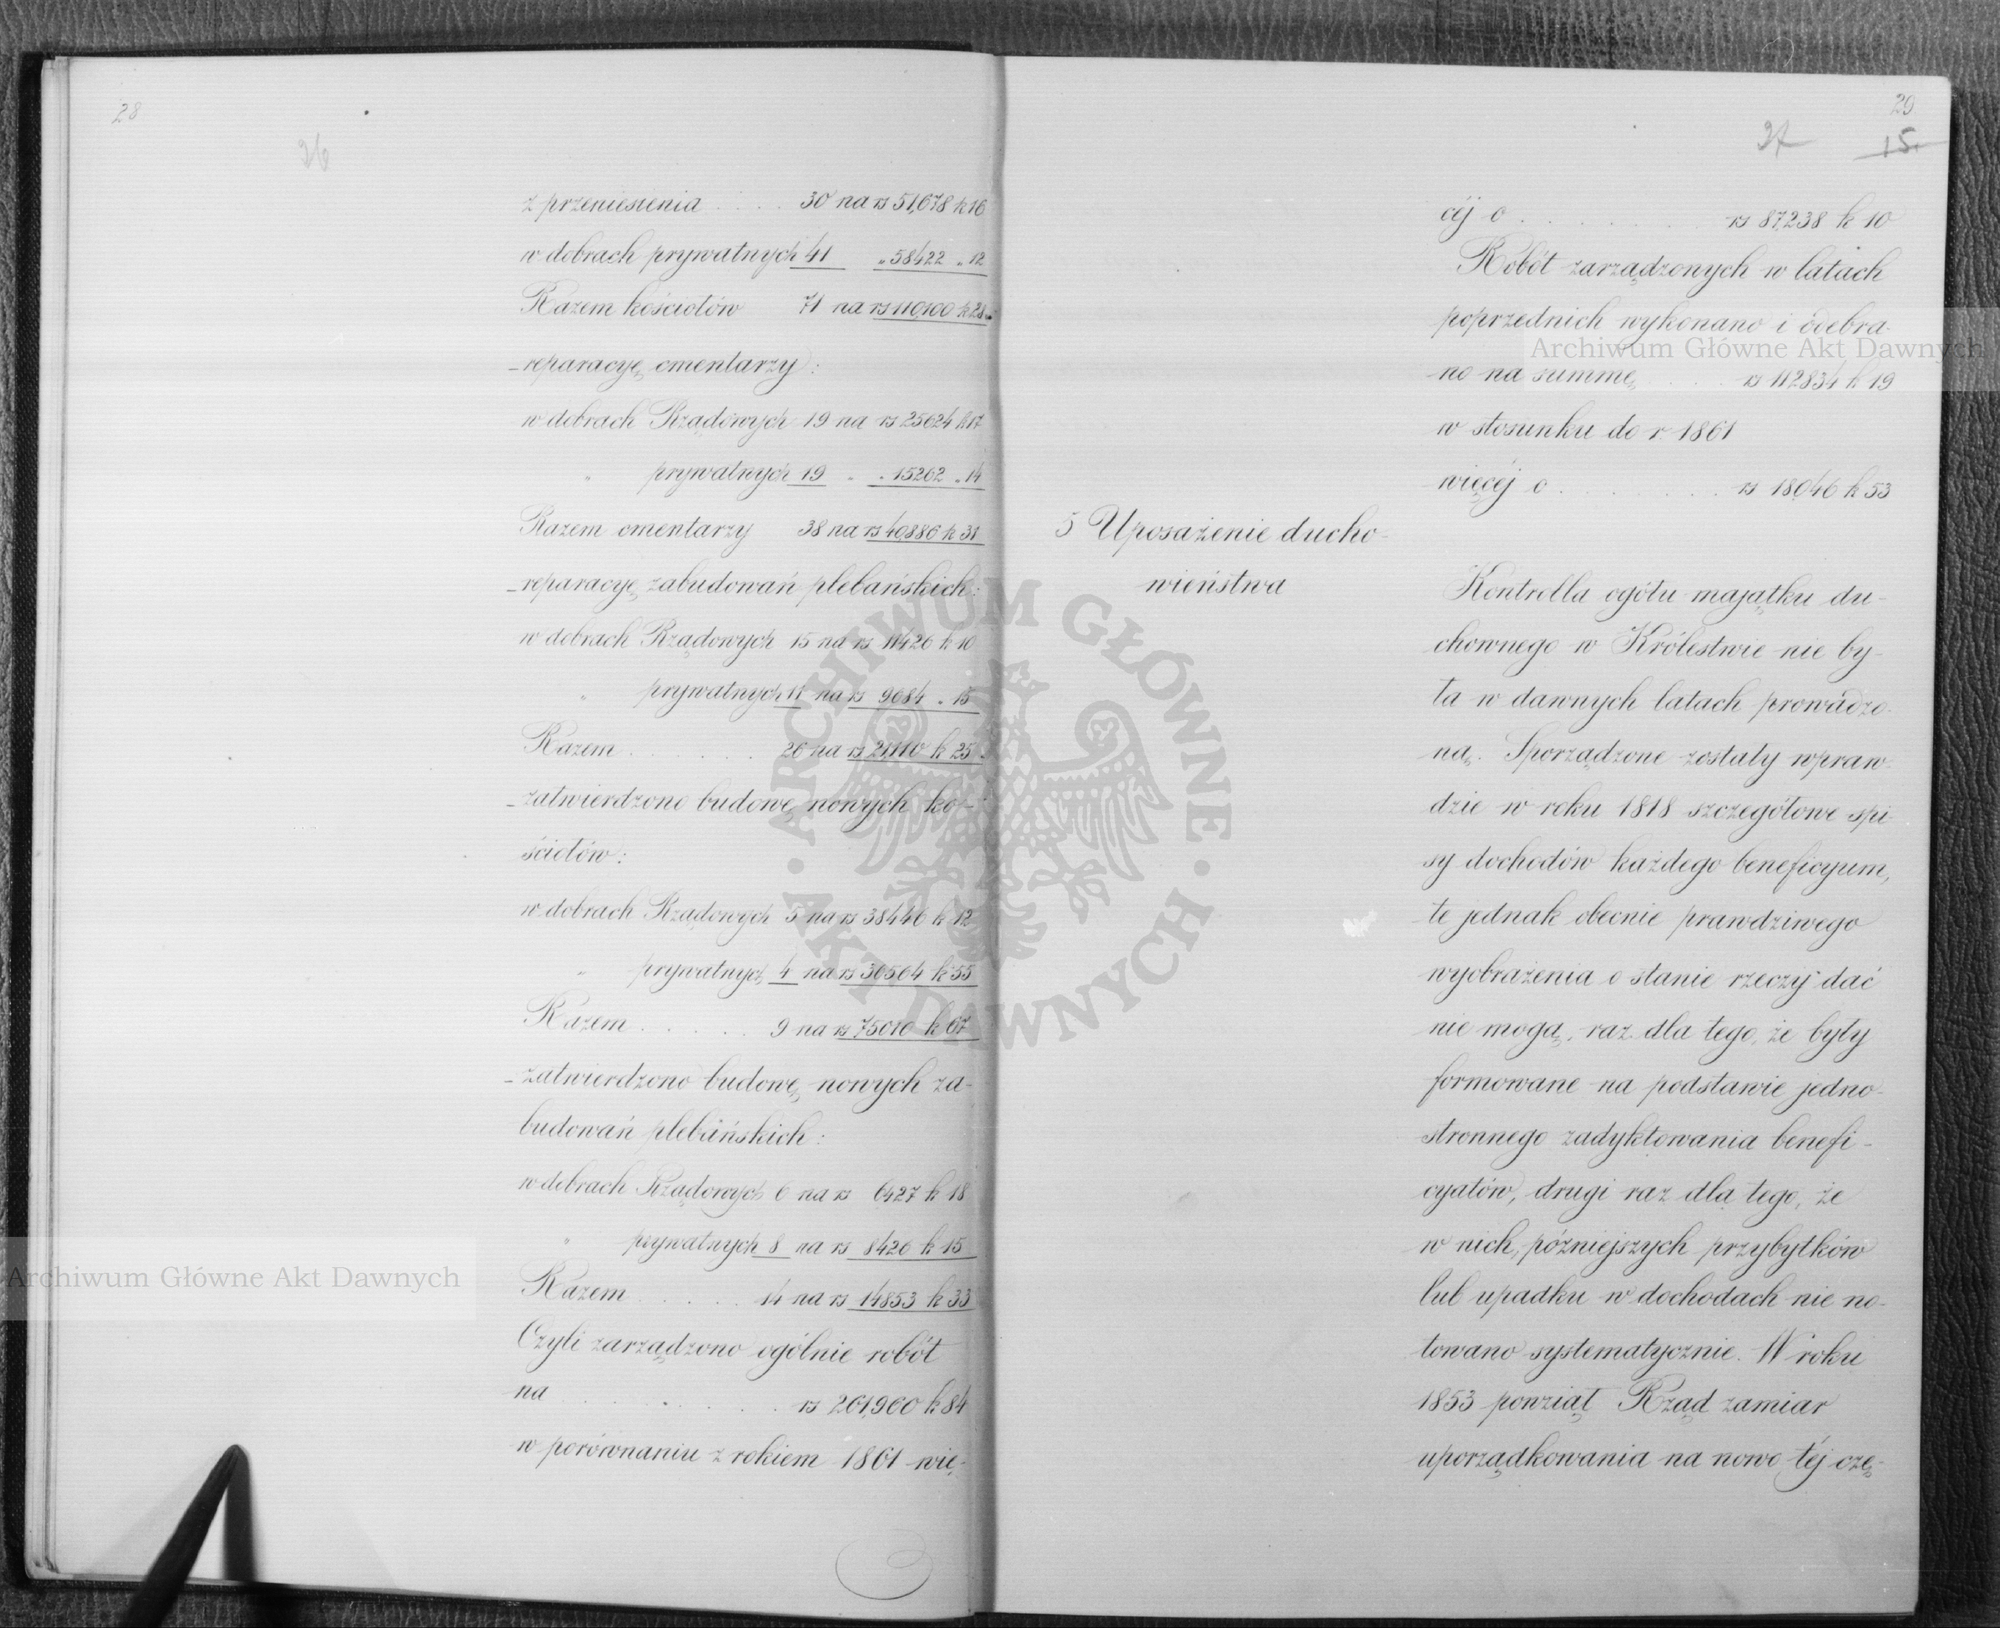 28
26
z przeniesienia . . . . 30 na rs 51,678 k 16
w dobrach prywatnych 41 „ 58422 „ 12
Razem kościołów 71 na rs 110,100 k 28
– reparacyę cmentarzy :
w dobrach Rządowych 19 na rs 25624 k 17
„ prywatnych 19 „ „ 15262 „ 14
Razem cmentarzy 38 na rs 40,886 k 31
– reparacyę zabudowań plebańskich :
w dobrach Rządowych 15 na rs 11426 k 10
„ prywatnych 11 na rs 9684 „ 15
Razem . . . . . . 26 na rs 21,110 k 25
– zatwierdzono budowę nowych ko-
ściołów :
w dobrach Rządowych 5 na rs 38446 k 12
„ prywatnych 4 na rs 36564 k 55
Razem . . . . . 9 na rs 75010 k 67
– zatwierdzono budowę nowych za-
budowań plebańskich :
w dobrach Rządowych 6 na rs 6427 k 18
„ prywatnych 8 na rs 8426 k 15
Razem . . . . . 14 na rs 14853 k 33
Czyli zarządzono ogólnie robót
na . . . . . . . . . rs 261,960 k 84
w porównaniu z rokiem 1861 wię-
29
27
15.
céj o . . . . . . . . rs 87,238 k 10
Robót zarządzonych w latach
poprzednich wykonano i odebra-
no na summę . . . . rs 112834 k 19
w stosunku do r 1861
więcéj o . . . . . . . . rs 18,046 k 53
5 Uposażenie ducho-
wieństwa
Kontrolla ogółu majątku du-
chownego w Królestwie nie by-
ła w dawnych latach prowadzo-
ną. Sporządzone zostały wpraw-
dzie w roku 1818 szczegółowe spi-
sy dochodów każdego beneficyum,
te jednak obecnie prawdziwego
wyobrażenia o stanie rzeczy dać
nie mogą, raz dla tego, że były
formowane na podstawie jedno-
stronnego zadyktowania benefi-
cyatów, drugi raz dla tego, że
w nich, późniejszych przybytków
lub upadku w dochodach nie no-
towano systematycznie. W roku
1853 powziął Rząd zamiar
uporządkowania na nowo téj czę-
Archiwum Główne Akt Dawnych
Archiwum Główne Akt Dawnych
ARCHIWUM GŁÓWNE · AKT DAWNYCH ·